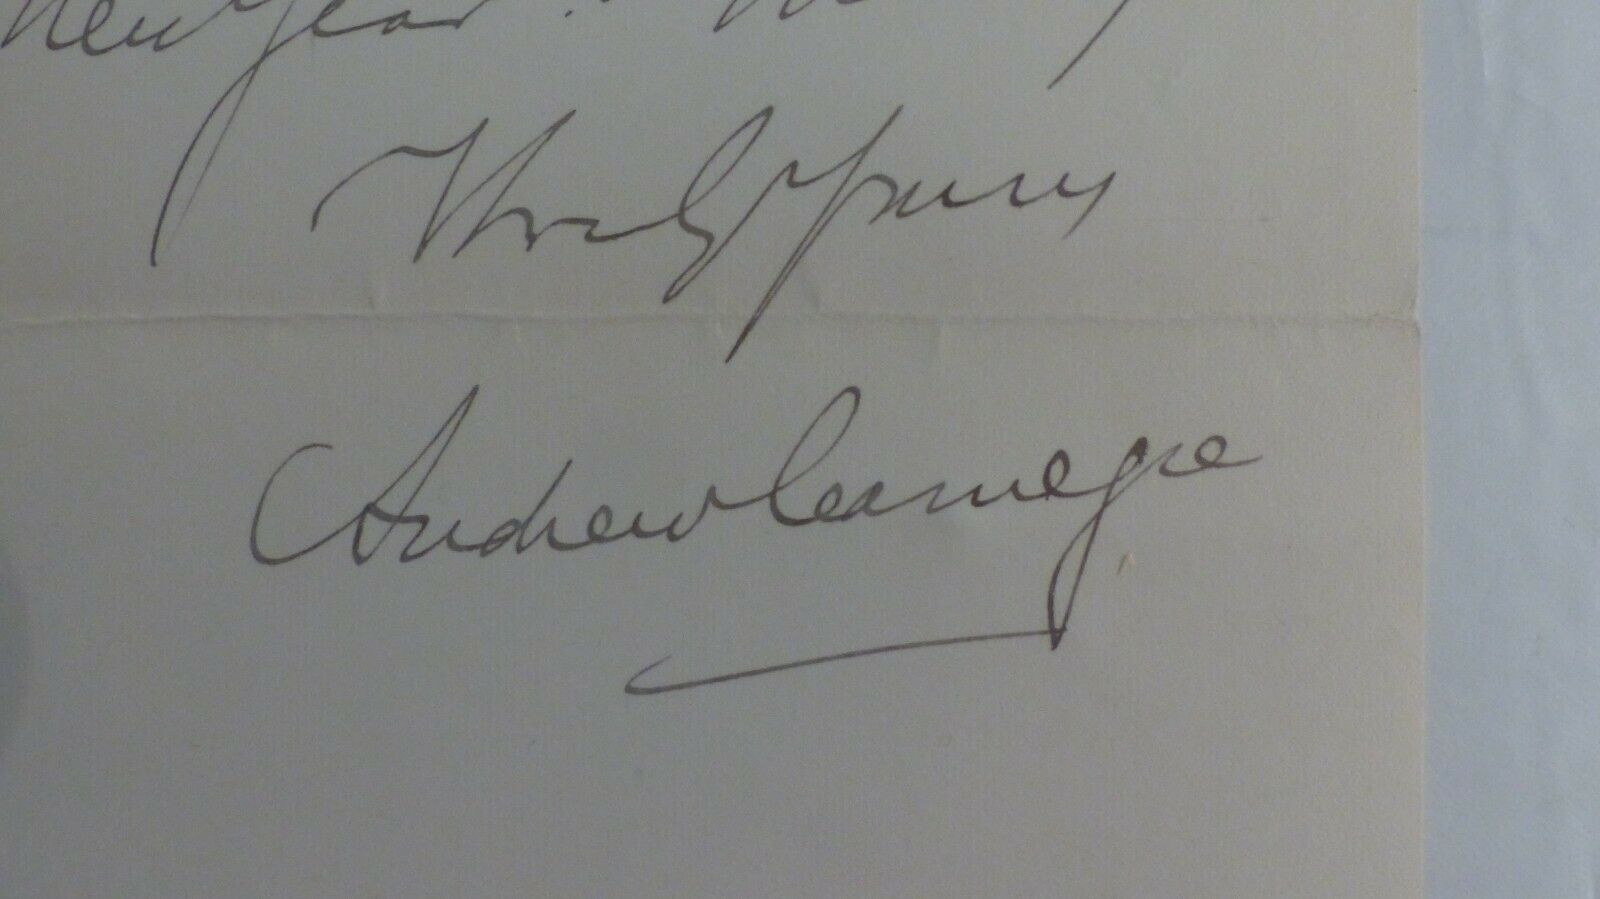 New Year.
Truly Yours
Andrew Carnegie